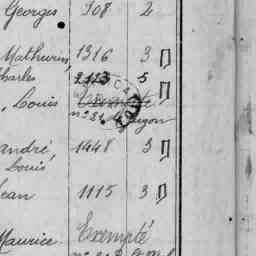 Georges 908 2
Mathurin, 1316 3
Charles 2123 5
, Louis Exempté
n° 31
André, 1448 3
Louis
Jean 1115 3
Maurice Exempté